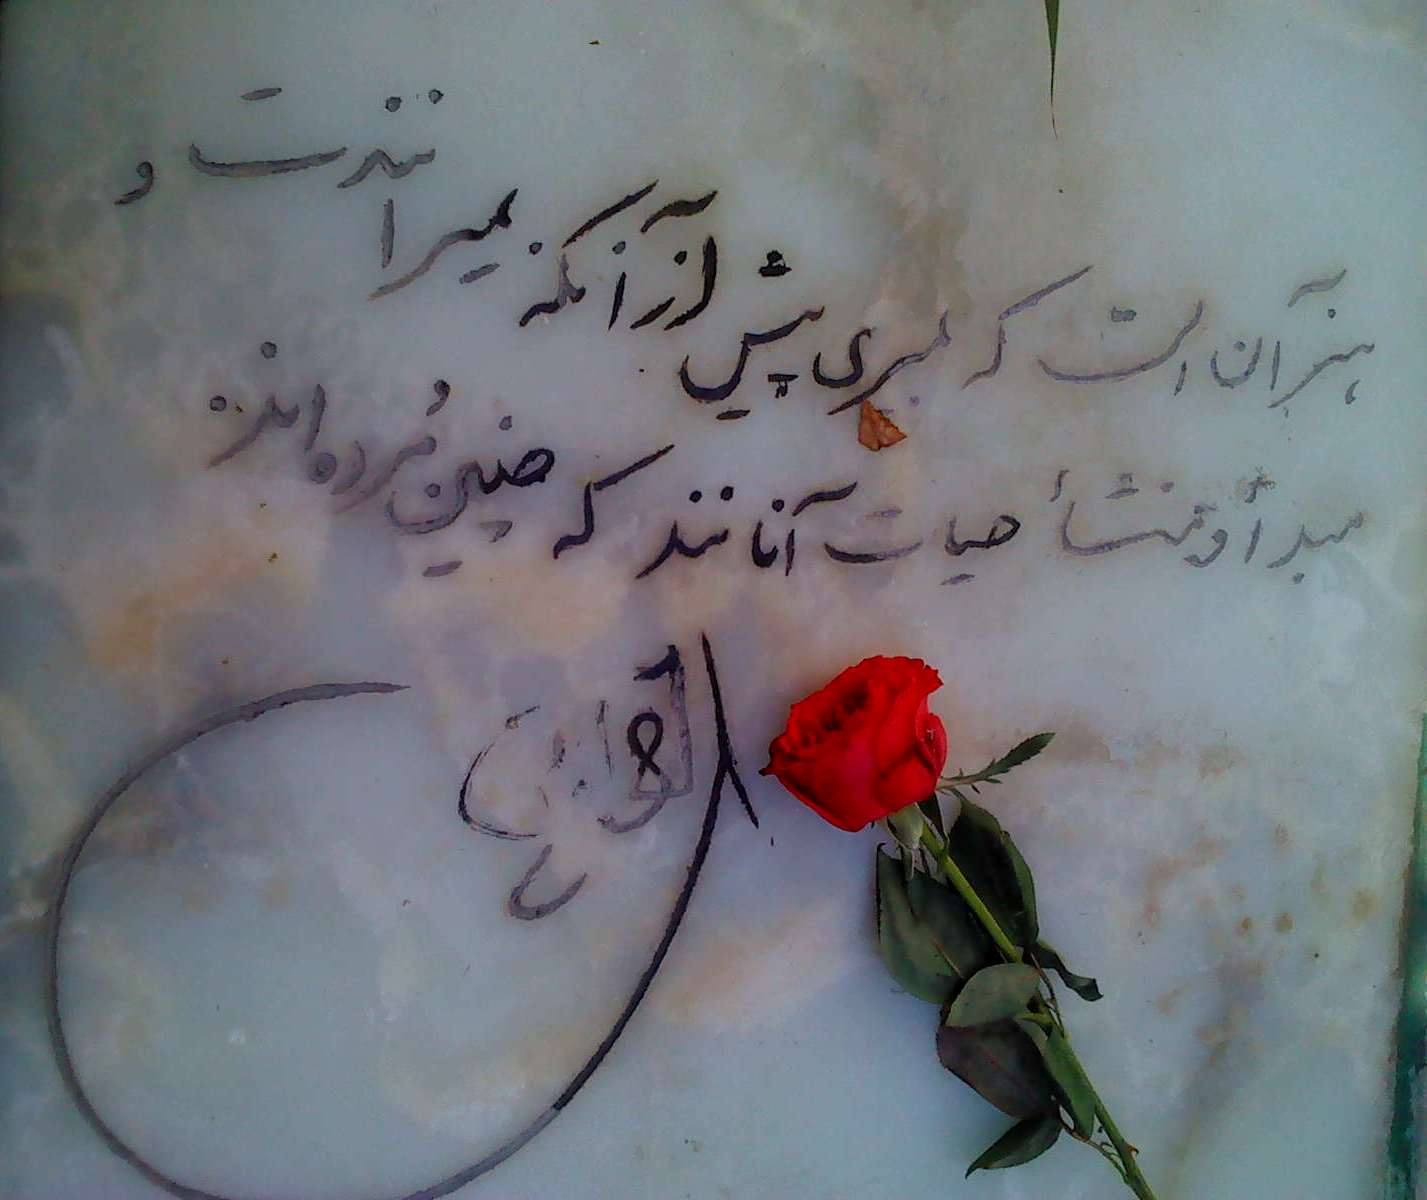 هنر آن است که بمیری پیش از آنکه بمیرانندت و
مبدأ و منشأ حیات آنانند که چنین مُرده‌اند